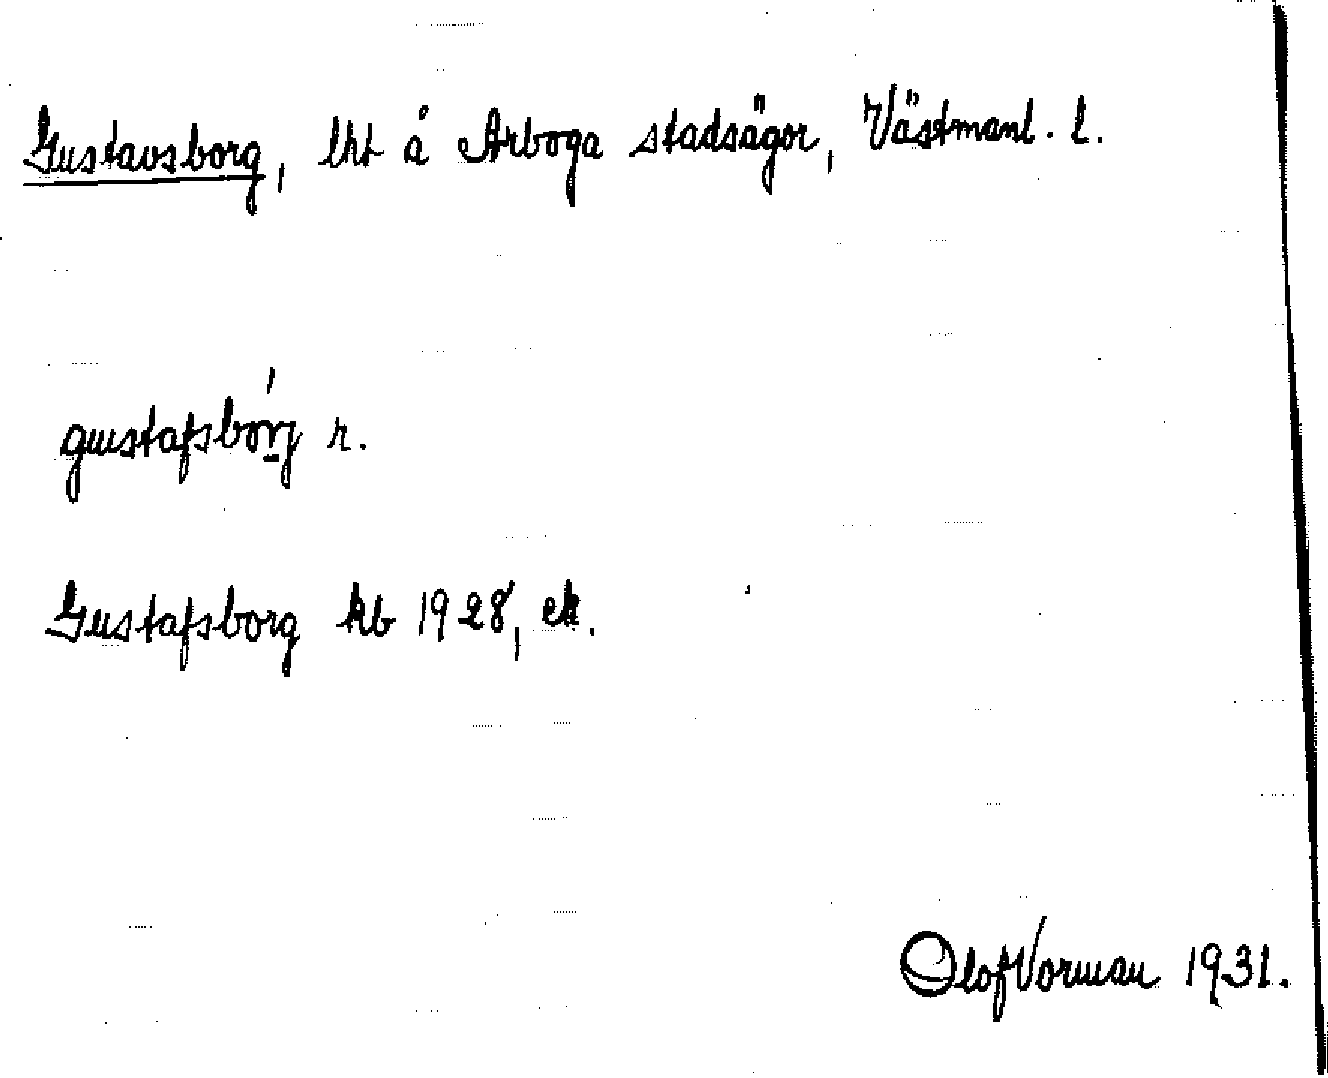 Gustavsborg, lht å Arboga stadsägor, Västmanl. l.
gustafsbórj r.
Gustafsborg kb 1928, ek.
Olof Vorman 1931.